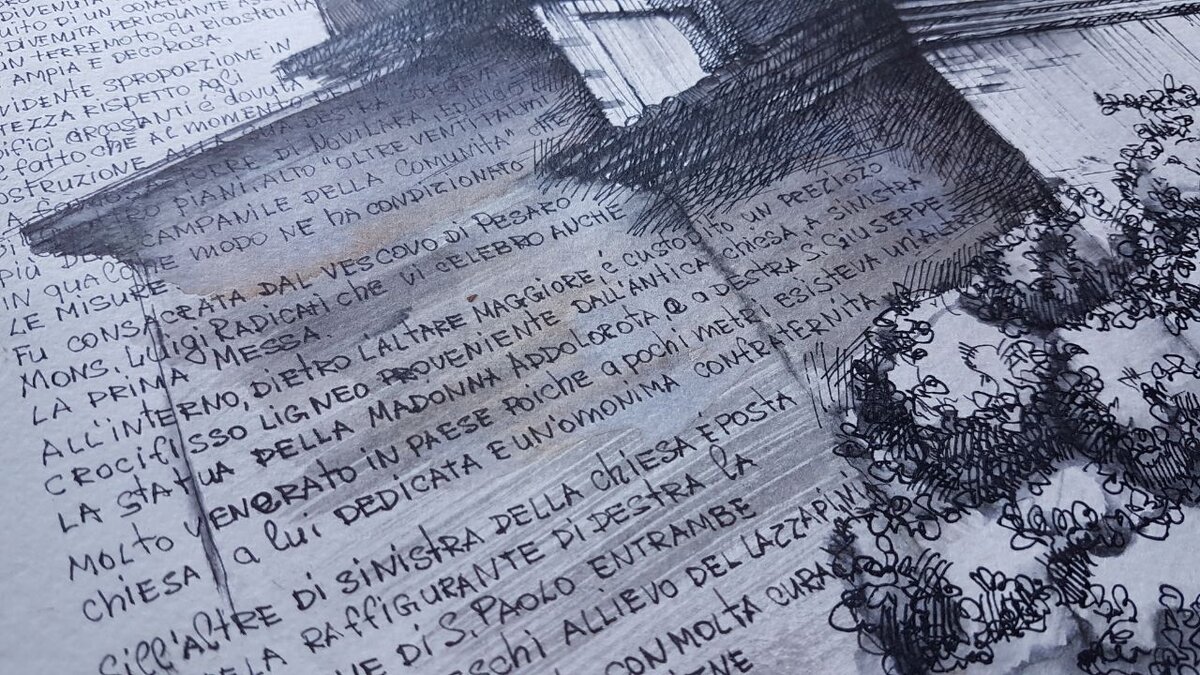 DIVENUTA
UITO DI UN COM PERICOLANTE A
DIVENUTA
UN TERREMOTO FU RICOSTRUITA
AMPIA E DECOROSA.
VIDENTE SPROPORZIONE IN
TEZZA RISPETTO AGli
IFICI CIRCOSTANTI é dovuta
FATTO CHE AL MOMENTO
OSTRUZIONE ALLA SUA DESTRA
TORRE DI NOVILARA
PIANI, ALTO "OLTRE VENTI
più CAMPANILE DELLA COMUNITA" CHE
IN QUALCHE MODO NE HA CONDIZIONATO
LE MISURE.
FU CONSACRATA DAL VESCOVO DI PESARO
MONS. LUIGI RADICATI CHE VI CELEBRO ANCHE
LA PRIMA MESSA.
ALL'INTERNO, DIETRO L'ALTARE MAGGIORE é CUSTODITO UN PREZIOZO
CROCIFISSO LIGNEO PROVENIENTE DALL'ANTICA CHIESA, A SINISTRA
LA STATUA DELLA MADONNA ADDOLOROTA e a DESTRA S. GIUSEPPE
MOLTO VENERATO IN PAESE POICHE a POCHI METRI ESISTEVA UN'ALTRA
CHIESA a lui DEDICATA E UN'OMONIMA CONFRATERNITA
Sill'alTRE DI SINISTRA DELLA CHIESA é POSTA
DELA RAFFIGURANTE DI DESTRA la
DI S. PAOLO ENTRAMBE
ESCHI ALLIEVO DEL LAZZARINI
CON MOLTA CURA